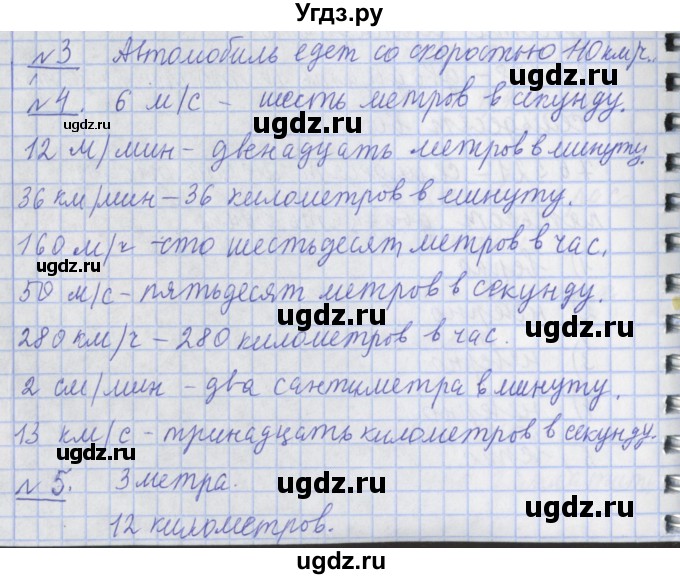 Угдз.ру
№3 Автомобиль едет со скоростью 110 км/ч.
№4. 6 м/с - шесть метров в секунду.
12 м/мин - двенадцать метров в минуту.
36 км/мин - 36 километров в минуту.
160 м/ч - сто шестьдесят метров в час.
50 м/с - пятьдесят метров в секунду.
280 км/ч - 280 километров в час.
2 см/мин - два сантиметра в минуту.
13 км/с - тринадцать километров в секунду.
№5. 3 метра.
12 километров.
ugdz.ru
ugdz.ru
ugdz.ru
ugdz.ru
ugdz.ru
ugdz.ru
ugdz.ru
ugdz.ru
ugdz.ru
ugdz.ru
ugdz.ru
ugdz.ru
ugdz.ru
ugdz.ru